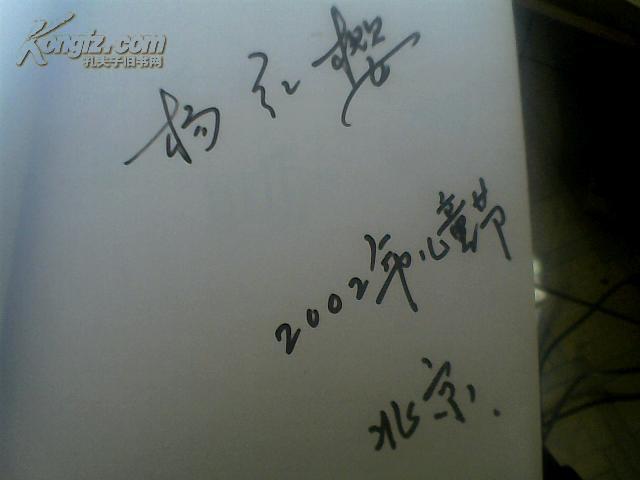 Kongfz.com
孔夫子旧书网
杨红樱
2002年儿童节
北京.